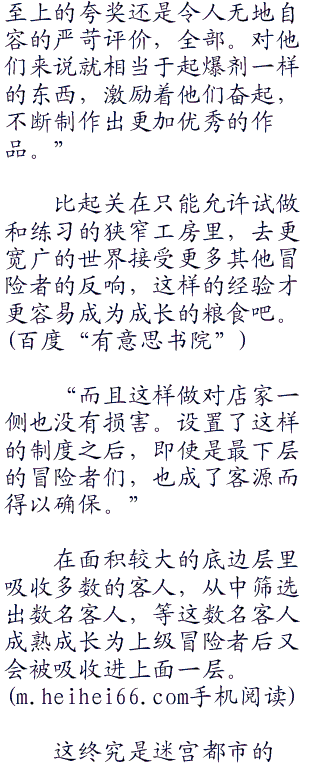 至上的夸奖还是令人无地自
容的严苛评价，全部。对他
们来说就相当于起爆剂一样
的东西，激励着他们奋起，
不断制作出更加优秀的作
品。”
比起关在只能允许试做
和练习的狭窄工房里，去更
宽广的世界接受更多其他冒
险者的反响，这样的经验才
更容易成为成长的粮食吧。
(百度“有意思书院”)
“而且这样做对店家一
侧也没有损害。设置了这样
的制度之后，即使是最下层
的冒险者们，也成了客源而
得以确保。”
在面积较大的底边层里
吸收多数的客人，从中筛选
出数名客人，等这数名客人
成熟成长为上级冒险者后又
会被吸收进上面一层。
(m.heihei66.com手机阅读)
这终究是迷宫都市的